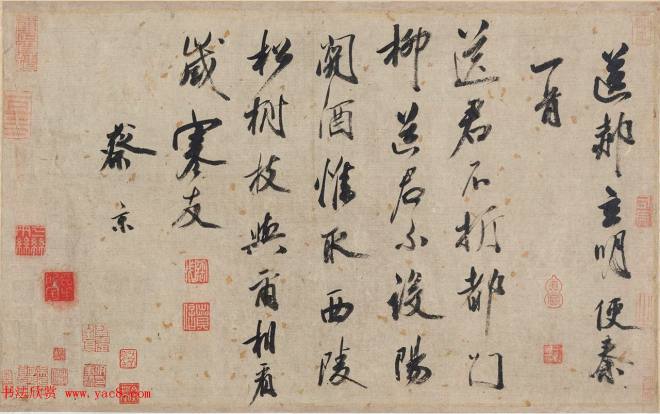 送郝玄明使秦
一首
送君不折都門
柳送君不設陽
關酒惟取西陵
松樹枝與爾相看
歲寒友
蔡京
书法欣赏 www.yac8.com